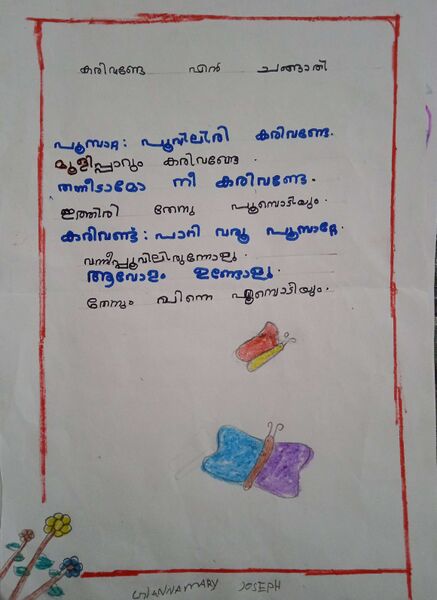 കരിവണ്ടേ എൻ ചങ്ങാതി
പൂമ്പാറ്റ: പൂവിലിരി കരിവണ്ടേ.
മൂളിപ്പാറും കരിവണ്ടേ.
തന്നീടാമോ നീ കരിവണ്ടേ.
ഇത്തിരി തേനു പൂമ്പൊടിയും.
കരിവണ്ട്: പാറി വരൂ പൂമ്പാറ്റേ.
വന്നീപ്പൂവിലിരുന്നോളൂ.
ആവോളം ഉണ്ടോളൂ.
തേനും പിന്നെ പൂമ്പൊടിയും.
ANNAMARY JOSEPH